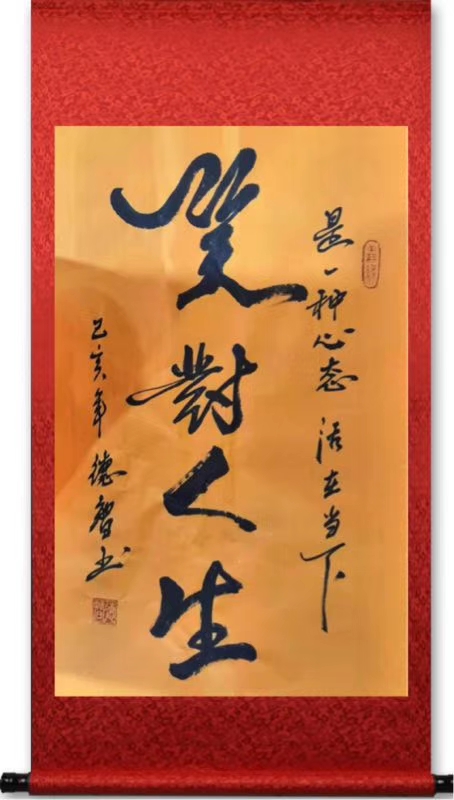 是一种心态 活在当下
笑對人生
己亥年 德智书